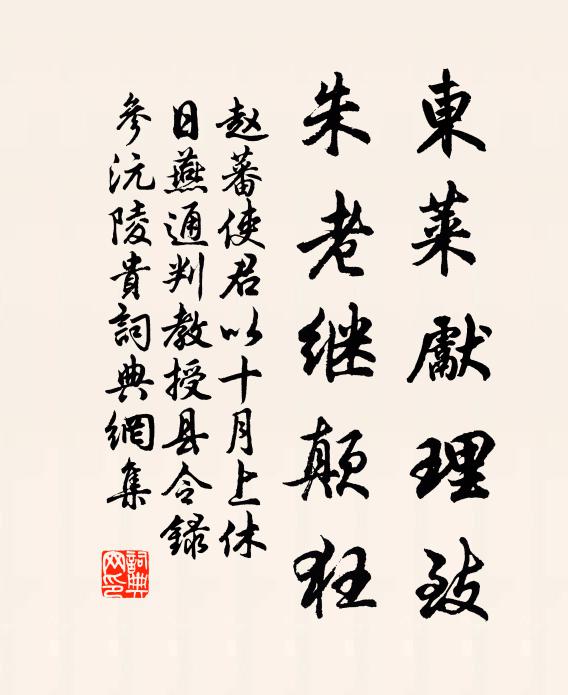 東萊獻理致
朱老继颠狂
赵蕃使君以十月上休
日燕通判教授县令録
參沅陵貴詞典網集
詞典網印